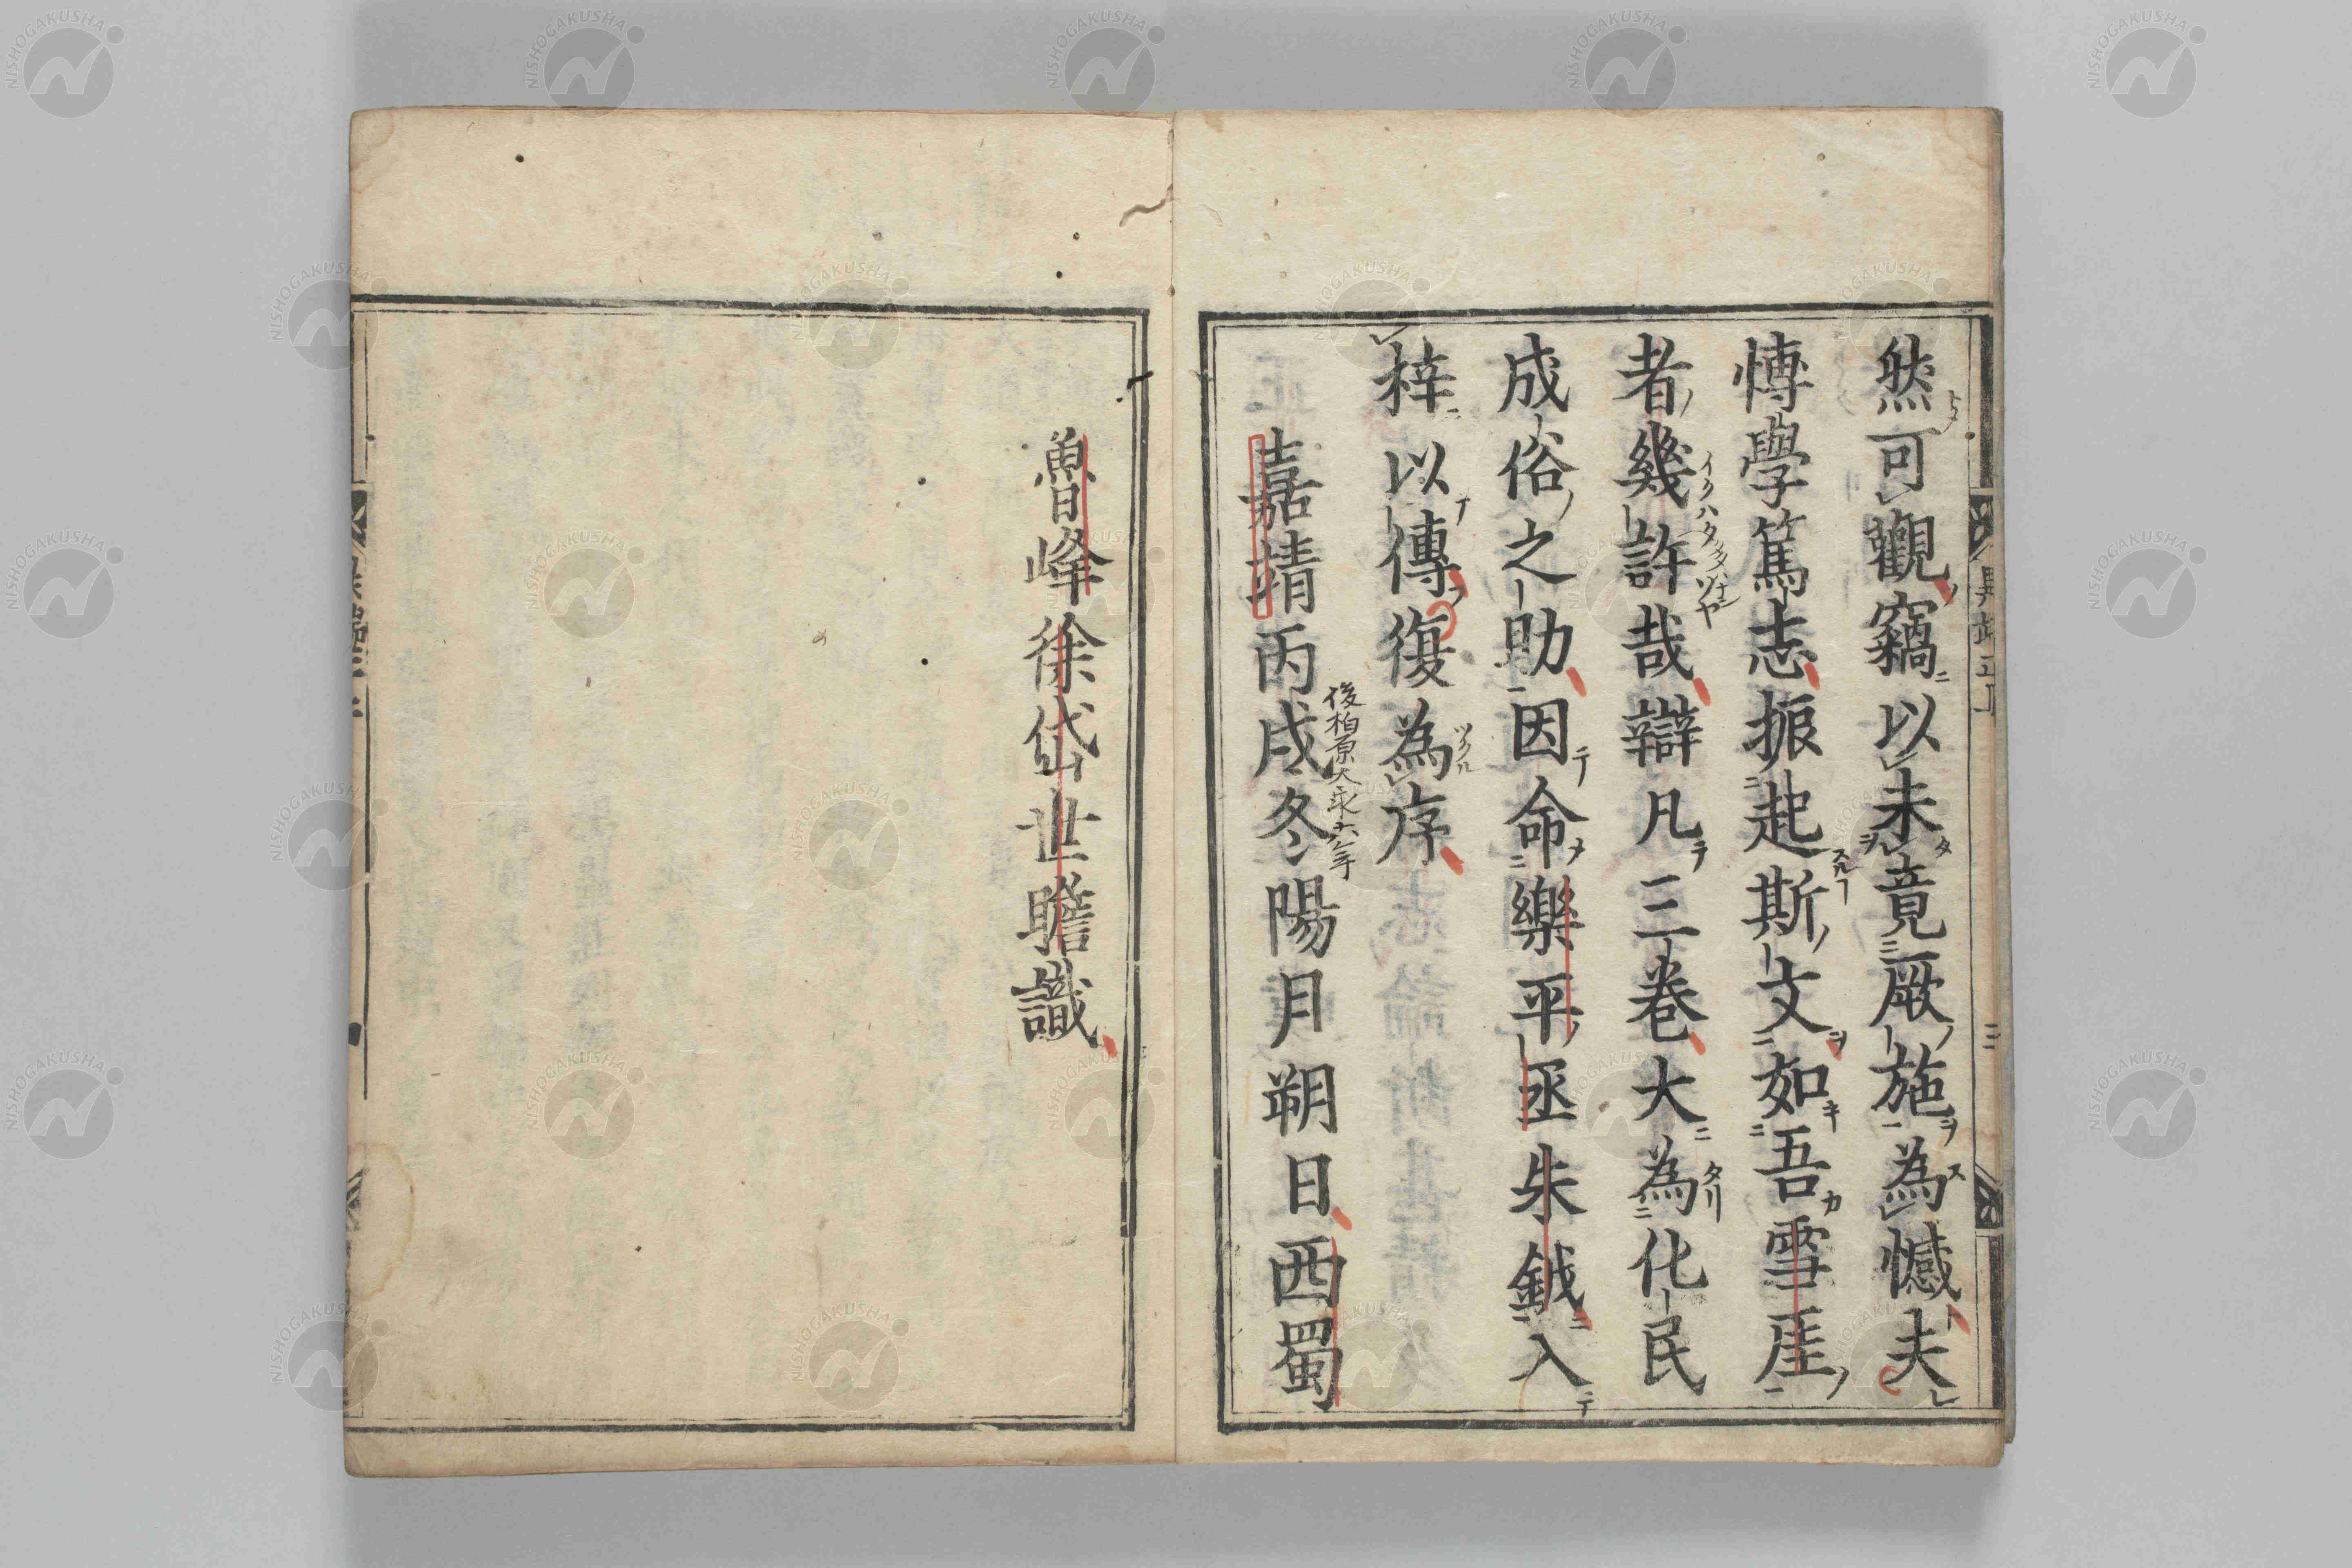 然可觀竊以未竟厥施為憾夫
博學篤志振起斯文如吾雪厓
者幾許哉辯凡三卷大為化民
成俗之助因命樂平丞朱鉞入
梓以傳復為序
後柏原大永六年
嘉靖丙戌冬陽月朔日西蜀
魯峰徐岱世瞻識
NISHOGAKUSHA